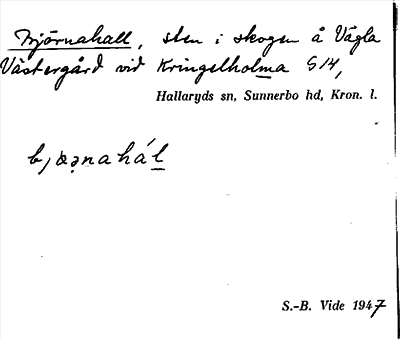 Björnahall, sten i skogen å Vägla
Västergård vid Kringelholma S14,
Hallaryds sn, Sunnerbo hd, Kron. l.
S.-B. Vide 1947